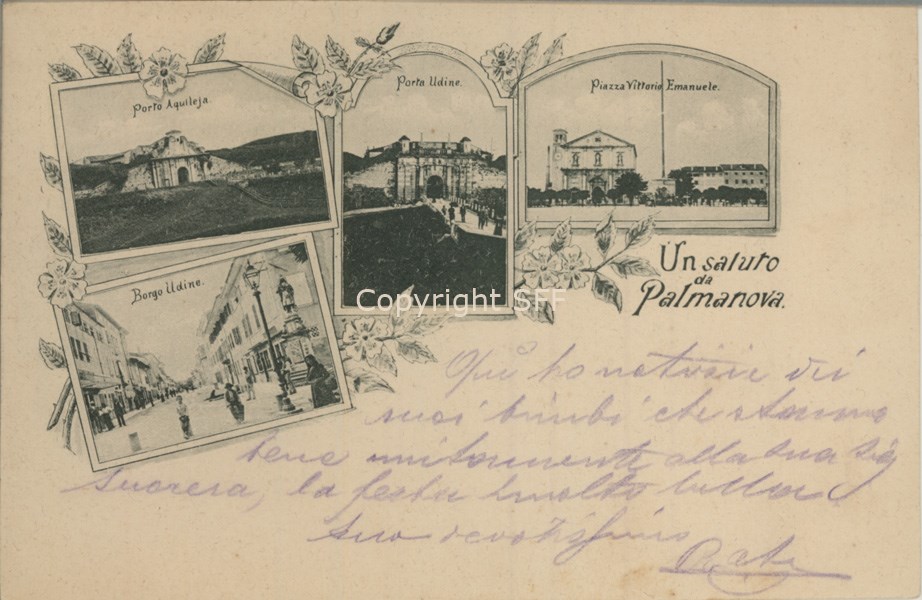 Porto Aquileja.
Porta Udine.
Piazza Vittorio Emanuele.
Borgo Udine.
Un saluto
da
Palmanova.
Copyright SFF
Qui ho notizie dei
suoi bimbi che stanno
bene unitamente alla sua Sig
Suocera, la festa molto bella
suo devotissimo